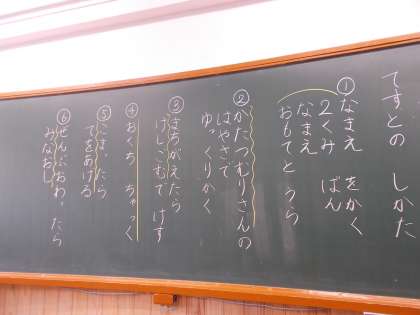 てすとの しかた
①なまえ をかく
2くみ ばん
なまえ
おもてと うら
②かたつむりさんの
はやさで
ゆっくりかく
③まちがえたら
けしごむで けす
④おくち ちゃっく
⑤こまったら
てをあげる
⑥ぜんぶおわったら
みなおし